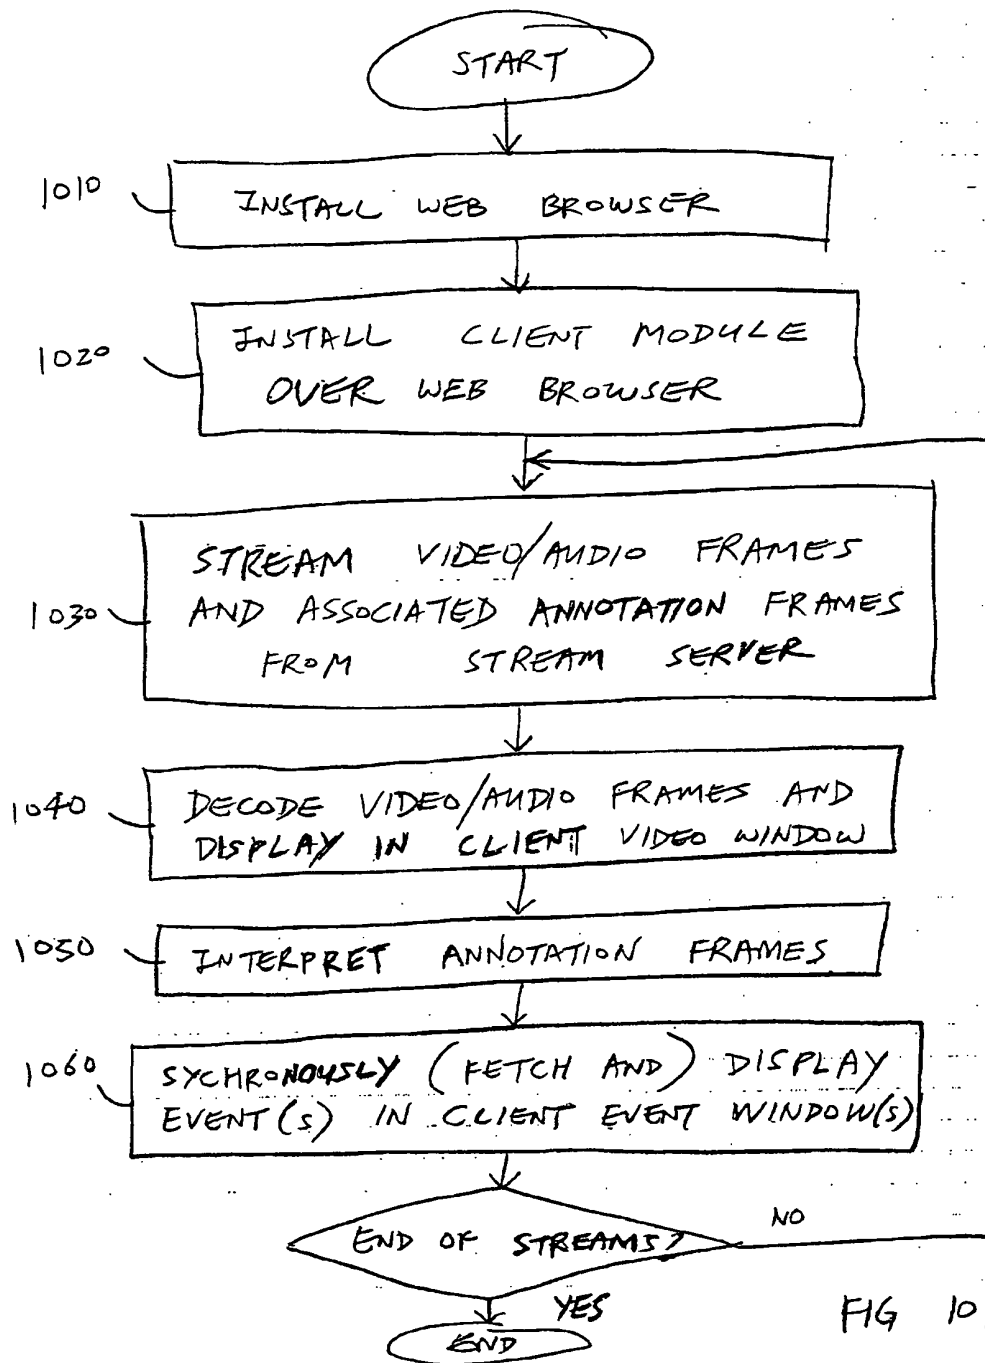 START
1010
INSTALL WEB BROWSER
1020
INSTALL CLIENT MODULE
OVER WEB BROWSER
1030
STREAM VIDEO/AUDIO FRAMES
AND ASSOCIATED ANNOTATION FRAMES
FROM STREAM SERVER
1040
DECODE VIDEO/AUDIO FRAMES AND
DISPLAY IN CLIENT VIDEO WINDOW
1050
INTERPRET ANNOTATION FRAMES
1060
SYCHRONOUSLY (FETCH AND) DISPLAY
EVENT(S) IN CLIENT EVENT WINDOW(S)
END OF STREAMS?
NO
YES
END
FIG 10